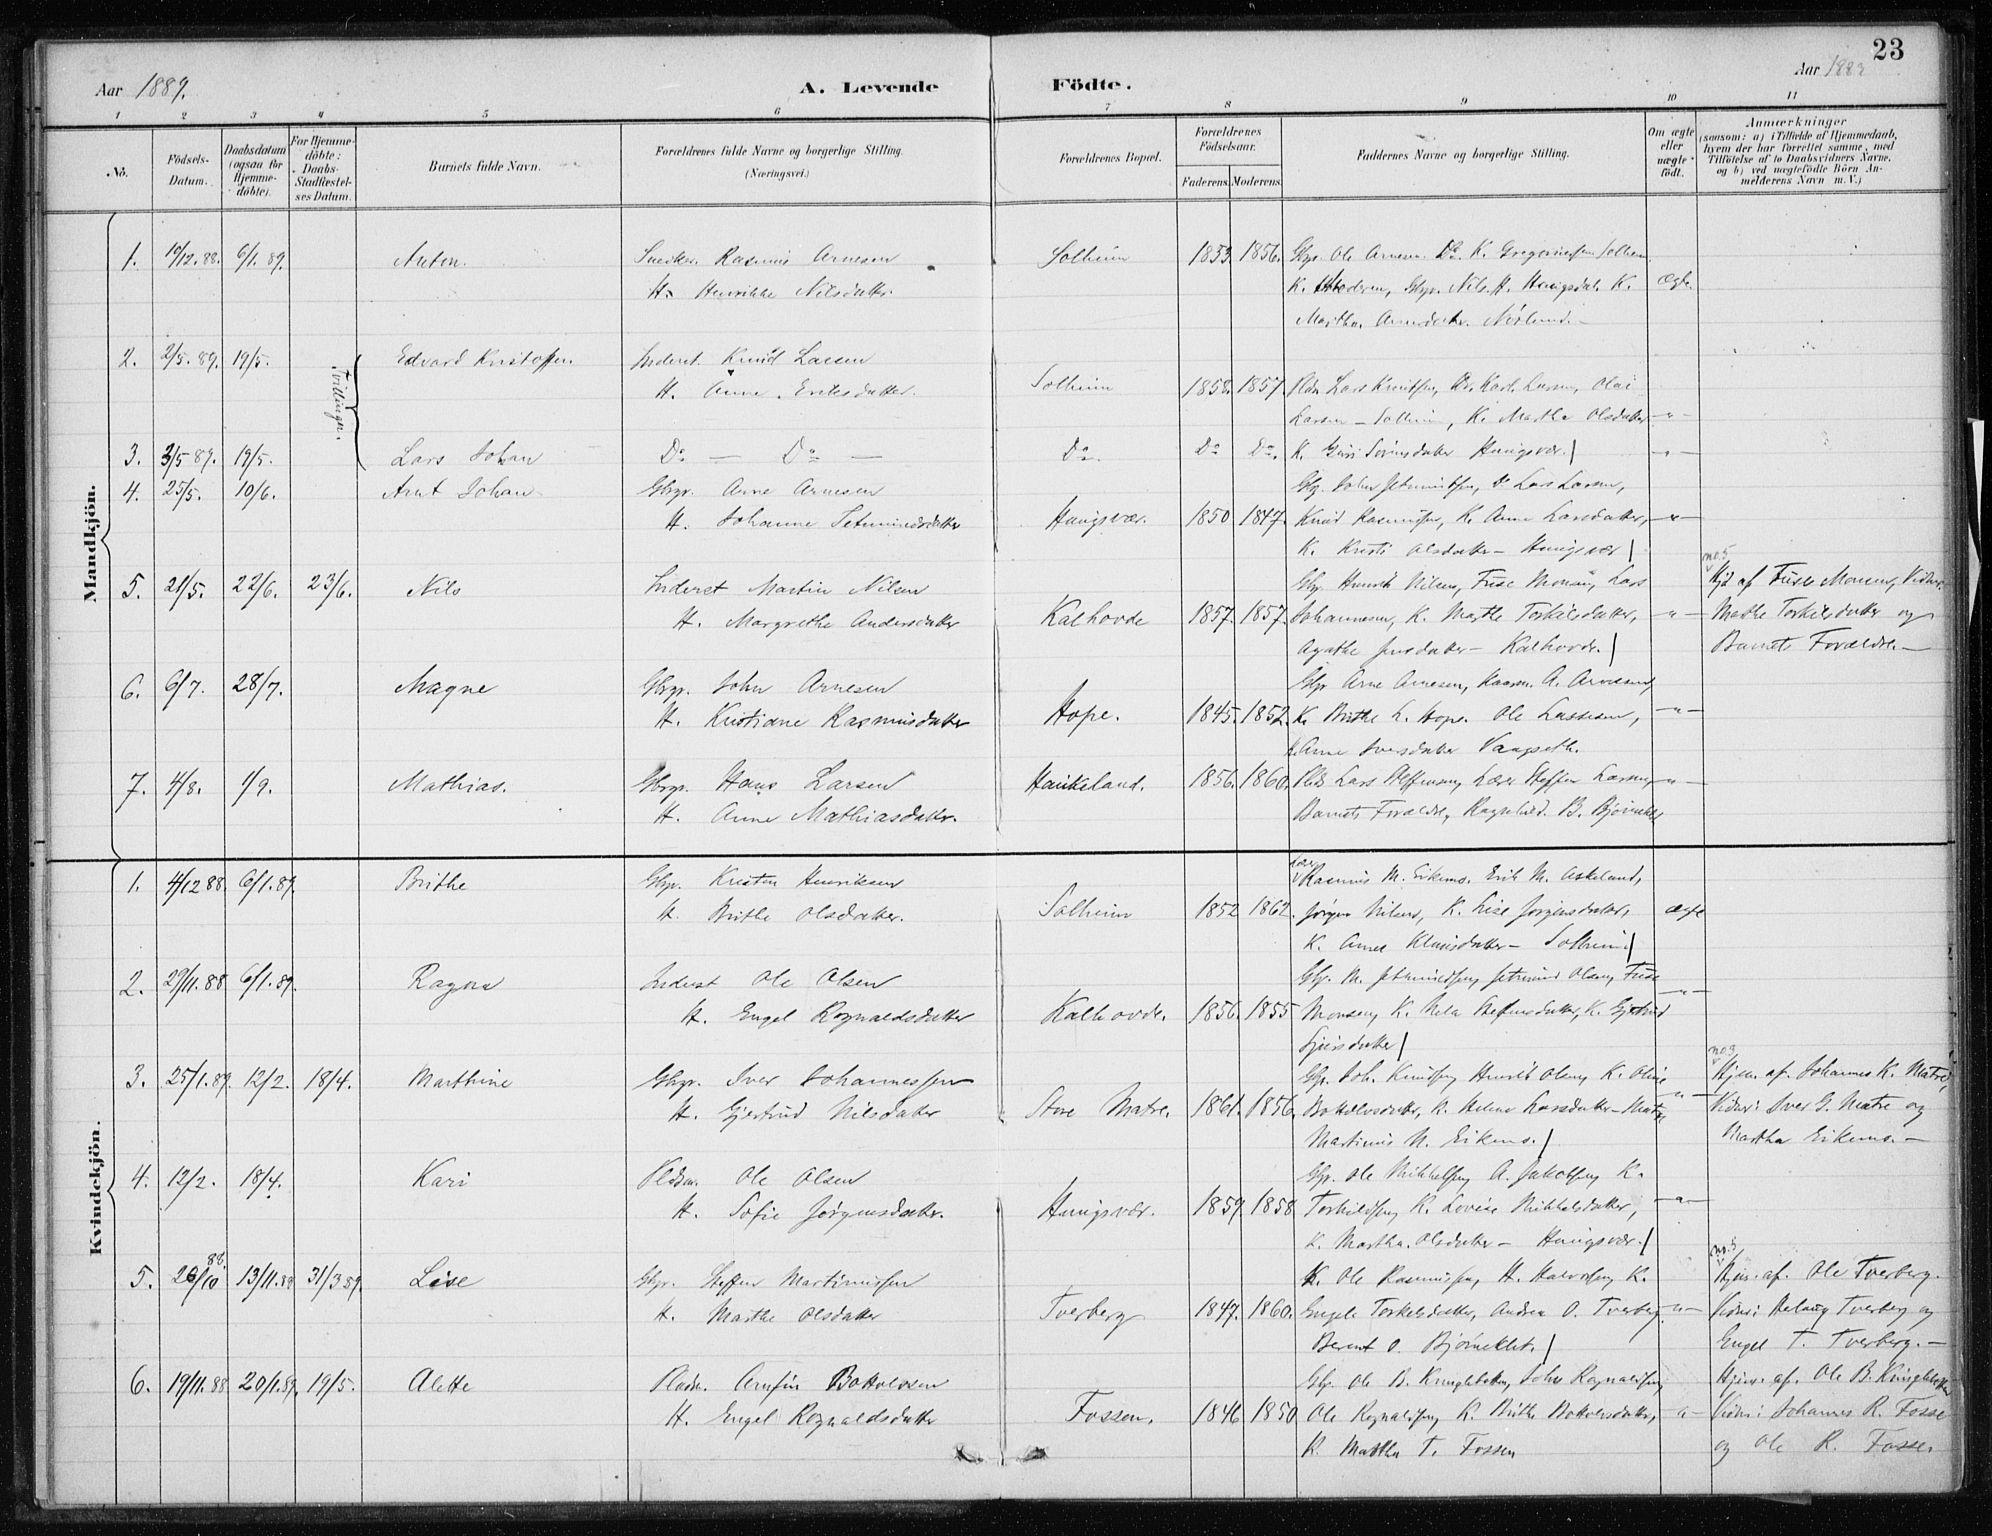 23
Aar 1889. A. Levende Födte. Aar 1889
1 2 3 4 5 6 7 8 9 10 11
No. Födsels-Datum. Daabsdatum (ogsaa for Hjemme-döbte). For Hjemme-döbte: Daabs-Stadfæstel-ses Datum. Barnets fulde Navn. Forældrenes fulde Navne og borgerlige Stilling. (Næringsvei.) Forældrenes Bopæl. Forældrenes Födselsaar. Faderens. Moderens. Faddernes Navne og borgerlige Stilling. Om ægte eller uægte födt. Anmærkninger (saasom: a) i Tilfælde af Hjemmedaab, hvem der har forrettet samme, med Tilföielse af to Daabsvidners Navne, og b) ved uægtefödte Börn An-melderens Navn m. V.)
Mandkjön.
1. 19/12.88. 6/1.89. Anton. Snedker Rasmus Arnesen Solheim 1853. 1856. Gbr. Ole Arnesen Do. K. Gregoriussen Solheim
H. Henrikke Nilsdatter. K. Moderen, Gbr. Nils H. Haugsdal. K. Ægte.
Martha Arnesdatter Nörland.
2. 2/5.89. 19/5. Tvillinger. Edvard Kristoffer. Inderst. Knud Larsen
H. Anne Eriksdatter. Solheim 1858. 1857. Plds. Lars Knutsen, Do. Karl Larsen, Olai
Larsen - Solheim, K. Marthe Olsdatter -"-
3. 3/5 89. 19/5. Lars Johan Do - Do - Do. Do Do. K. Guri Sörensdatter Haugsvær. -"-
4. 25/5. 10/6. Arnt Johan Gbr. Arne Arnesen Gbr. John Jetmundsen, Do Lars Larsen,
H. Johanne Jetmundsdatter Haugsvær. 1850 1847. Knud Rasmussen, K. Anne Larsdatter, -"-
K. Kristi Olsdatter - Haugsvær
5. 21/5. 22/6. 23/6. Nils Inderst Martin Nilsen Gbr. Henrik Nilsen, Fuse Monsen, Lars no. 5 Hjd af Fuse Monsen, Vidner
H. Margrethe Andersdatter Kalhovde 1857. 1857. Johannesen, K. Marthe Torkilsdatter, -"- Marthe Torkilsdatter og
Agathe Jensdatter - Kalhovde. Barnets Forældre. -
6. 6/7. 28/7. Magne Gbr. John Arnesen Gbr Arne Arnesen, Rasm. A. Arnesen,
H. Kristiane Rasmusdatter Hope. 1845. 1852. K. Brithe L. Hope. Ole Lassesen, -"-
K. Anne Iversdatter Vangseth.
7. 4/8. 1/9. Mathias. Gbr. Hans Larsen Haukeland. 1856. 1860. Plds Lars Steffensen, Lærer Steffen Larsen, -"-
H. Anne Mathiasdatter. Barnets Forældre, Ragnhild B. Bjørneklet
Kvindekjön.
1. 4/12 88. 6/1.89. Brithe Gbr. Kristen Henriksen Rasmus M. Eikemo. Erik M. Askeland,
H. Brithe Olsdatter. Solheim 1852 1862. Jørgen Nilsen, K. Lise Jørgensdatter, ægte
K. Anne Klausdatter - Solheim
2. 29/11.88 6/1.89. Ragna Inderst Ole Olsen Gbr. M. Jetmundsen, Jetmund Olsen, Fuse -"-
H. Engel Rognaldsdatter Kalhovde. 1856. 1855 Monsen, K. Nila Steffensdatter, K. Gjertrud
Sjursdatter
3. 25/1.89. 12/2. 18/4. Marthine Gbr. Iver Johannessen Gbr. Joh. Knudsen, Henrik Olsen, K. Oline no. 3 Hjem. af. Johannes K. Matre,
H. Gjertrud Nilsdatter Store Matre. 1861. 1856. Bottolvsdatter, K. Helene Larsdatter - Matre -"- Vidner: Iver G. Matre og
Martinus N. Eikemo. Martha Eikemo. -
4. 12/2. 18/4. Kari Pldsm. Ole Olsen Gbr. Ole Mikkelsen, A. Jakobsen, K.
H. Sofie Jørgensdatter. Haugsvær. 1859. 1858 Torkildsen, K. Lovise Mikkelsdatter, -"-
K. Martha Olsdatter - Haugsvær.
5. 26/10 88. 13/11.88 31/3 89. Lise Gbr. Steffen Martinussen K. Ole Rasmussen, H. Halvorsen, K. no. 5 Hjem. af. Ole Tverberg.
H. Marthe Olsdatter Tverberg 1847. 1860. Engele Torkelsdatter, Andrea O. Tverberg -"- Vidner: Tverberg og
Berent O. Bjørneklet. Engel T. Tverberg. -
6. 19/11.88 20/1.89. 19/5. Alette Pladsm. Arnfin Bottolvsen Gbr. Ole B. Kringlebotten, John Rognaldsen, Hjem. af. Ole B. Kringlebotten
H. Engel Rognaldsdatter Fossen. 1846 1850 Ole Rognaldsen, K. Brithe Bottolvsdatter, -"- Vidner: Johannes R. Fosse
K. Martha T. Fossen og Ole R. Fosse.